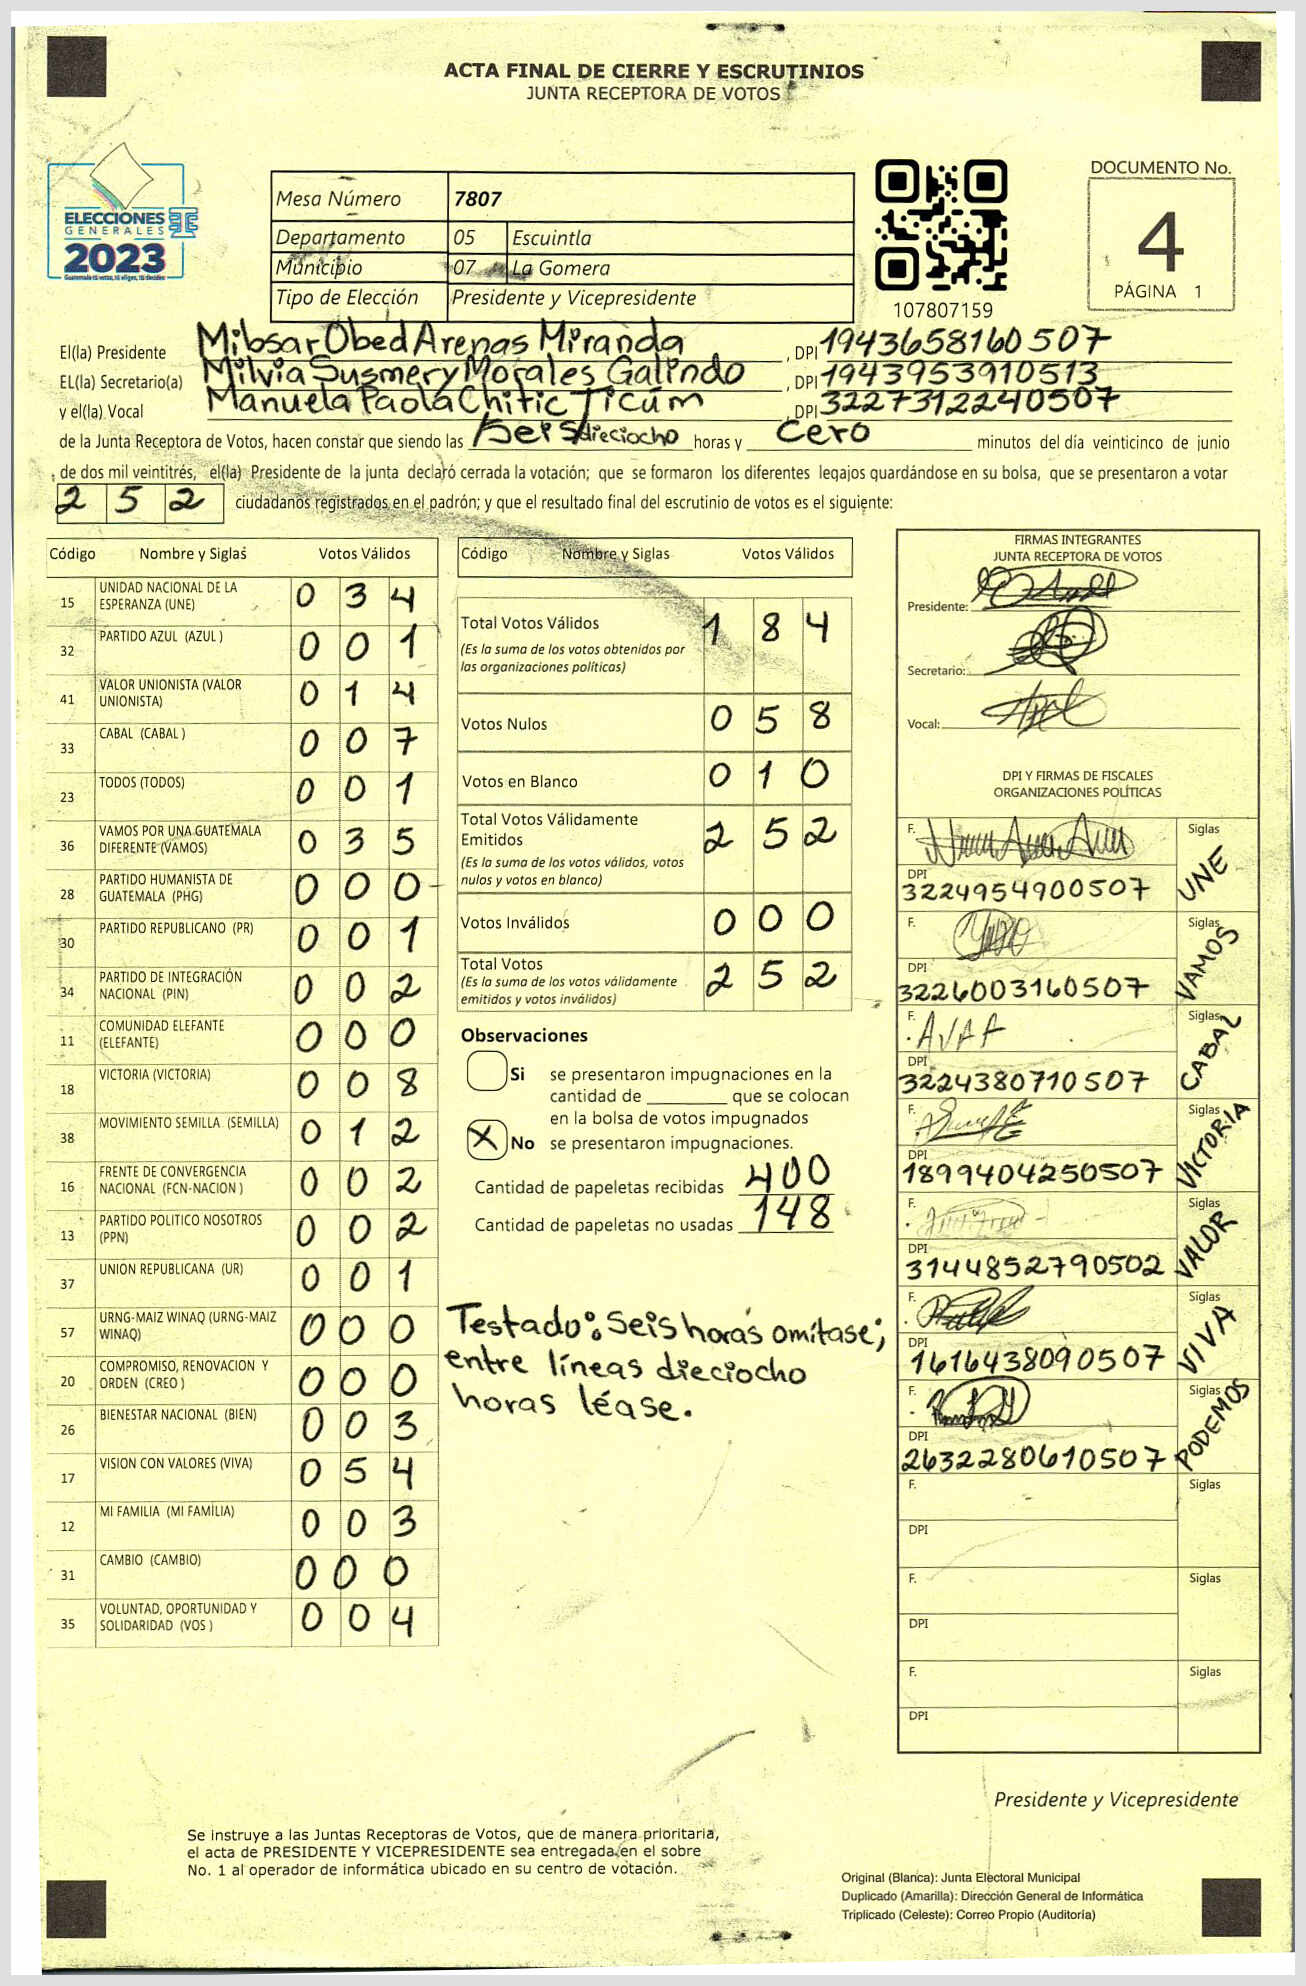 ACTA FINAL DE CIERRE Y ESCRUTINIOS
JUNTA RECEPTORA DE VOTOS
ELECCIONES
GENERALES
2023
Guatemala tú votas, tú eliges, tú decides
Mesa Número 7807
Departamento 05 Escuintla
Municipio 07 La Gomera
Tipo de Elección Presidente y Vicepresidente
107807159
DOCUMENTO No.
4
PÁGINA 1
El(la) Presidente Mibsar Obed Arenas Miranda, DPI 1943658160507
EL(la) Secretario(a) Milvia Susmery Morales Galindo, DPI 1943953910513
y el(la) Vocal Manuela Paola Chitic Ticúm, DPI 3227312240507
de la Junta Receptora de Votos, hacen constar que siendo las seis dieciocho horas y cero minutos del día veinticinco de junio
de dos mil veintitrés, el(la) Presidente de la junta declaró cerrada la votación; que se formaron los diferentes legajos quardándose en su bolsa, que se presentaron a votar
252 ciudadanos registrados en el padrón; y que el resultado final del escrutinio de votos es el siguiente:
Código Nombre y Siglas Votos Válidos
15 UNIDAD NACIONAL DE LA ESPERANZA (UNE) 0 3 4
32 PARTIDO AZUL (AZUL ) 0 0 1
41 VALOR UNIONISTA (VALOR UNIONISTA) 0 1 4
33 CABAL (CABAL ) 0 0 7
23 TODOS (TODOS) 0 0 1
36 VAMOS POR UNA GUATEMALA DIFERENTE (VAMOS) 0 3 5
28 PARTIDO HUMANISTA DE GUATEMALA (PHG) 0 0 0
30 PARTIDO REPUBLICANO (PR) 0 0 1
34 PARTIDO DE INTEGRACIÓN NACIONAL (PIN) 0 0 2
11 COMUNIDAD ELEFANTE (ELEFANTE) 0 0 0
18 VICTORIA (VICTORIA) 0 0 8
38 MOVIMIENTO SEMILLA (SEMILLA) 0 1 2
16 FRENTE DE CONVERGENCIA NACIONAL (FCN-NACION ) 0 0 2
13 PARTIDO POLITICO NOSOTROS (PPN) 0 0 2
37 UNION REPUBLICANA (UR) 0 0 1
57 URNG-MAIZ WINAQ (URNG-MAIZ WINAQ) 0 0 0
20 COMPROMISO, RENOVACION Y ORDEN (CREO ) 0 0 0
26 BIENESTAR NACIONAL (BIEN) 0 0 3
17 VISION CON VALORES (VIVA) 0 5 4
12 MI FAMILIA (MI FAMILIA) 0 0 3
31 CAMBIO (CAMBIO) 0 0 0
35 VOLUNTAD, OPORTUNIDAD Y SOLIDARIDAD (VOS ) 0 0 4
Código Nombre y Siglas Votos Válidos
Total Votos Válidos 1 8 4
(Es la suma de los votos obtenidos por
las organizaciones políticas)
Votos Nulos 0 5 8
Votos en Blanco 0 1 0
Total Votos Válidamente
Emitidos 2 5 2
(Es la suma de los votos válidos, votos
nulos y votos en blanco)
Votos Inválidos 0 0 0
Total Votos 2 5 2
(Es la suma de los votos válidamente
emitidos y votos inválidos)
Observaciones
Si se presentaron impugnaciones en la
cantidad de ________ que se colocan
en la bolsa de votos impugnados
X No se presentaron impugnaciones.
Cantidad de papeletas recibidas 400
Cantidad de papeletas no usadas 148
Testado: seis horas omitase;
entre líneas dieciocho
horas léase.
FIRMAS INTEGRANTES
JUNTA RECEPTORA DE VOTOS
Presidente:
Secretario:
Vocal:
DPI Y FIRMAS DE FISCALES
ORGANIZACIONES POLÍTICAS
F. Siglas UNE
DPI 3224954900507
F. Siglas VAMOS
DPI 3226003160507
F. Siglas CABAL
DPI 3224380710507
F. Siglas VICTORIA
DPI 1899404250507
F. Siglas VALOR
DPI 3144852790502
F. Siglas VIVA
DPI 1616438090507
F. Siglas PODEMOS
DPI 2632280610507
F. Siglas
DPI
F. Siglas
DPI
F. Siglas
DPI
Presidente y Vicepresidente
Se instruye a las Juntas Receptoras de Votos, que de manera prioritaria,
el acta de PRESIDENTE Y VICEPRESIDENTE sea entregada en el sobre
No. 1 al operador de informática ubicado en su centro de votación.
Original (Blanca): Junta Electoral Municipal
Duplicado (Amarilla): Dirección General de Informática
Triplicado (Celeste): Correo Propio (Auditoría)